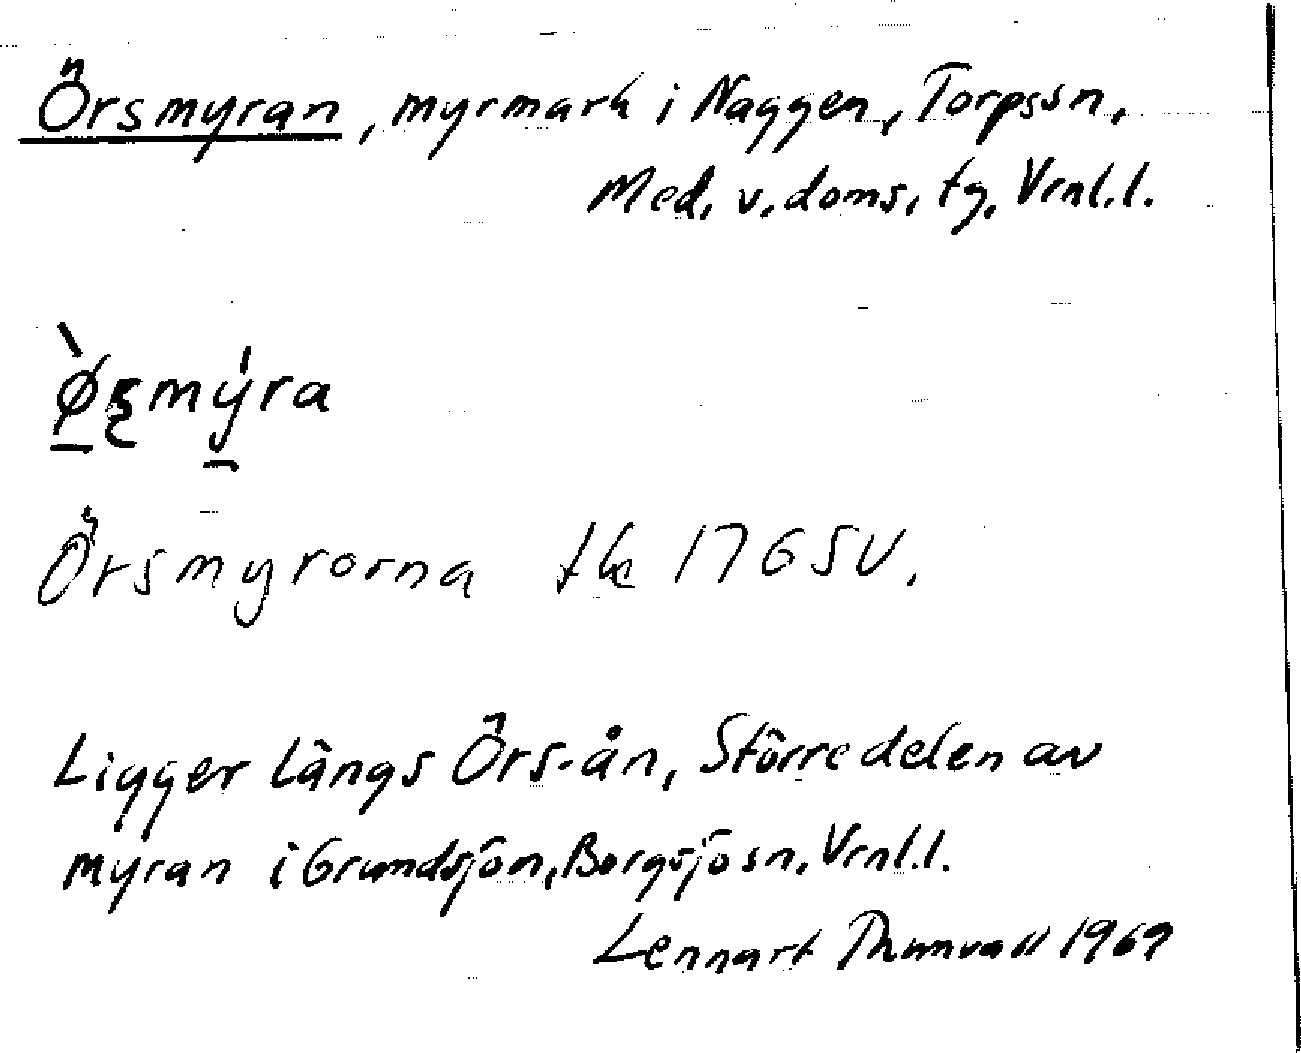 Örsmyran, myrmark i Naggen, Torpssn,
Med. v. doms. tg. Vrnl.l.
Örsmyrorna tk 17G SV.
Ligger längs Örs-ån, Större delen av
myran i Grundsjön, Borgsjösn. Vrnl.l.
Lennart 1969